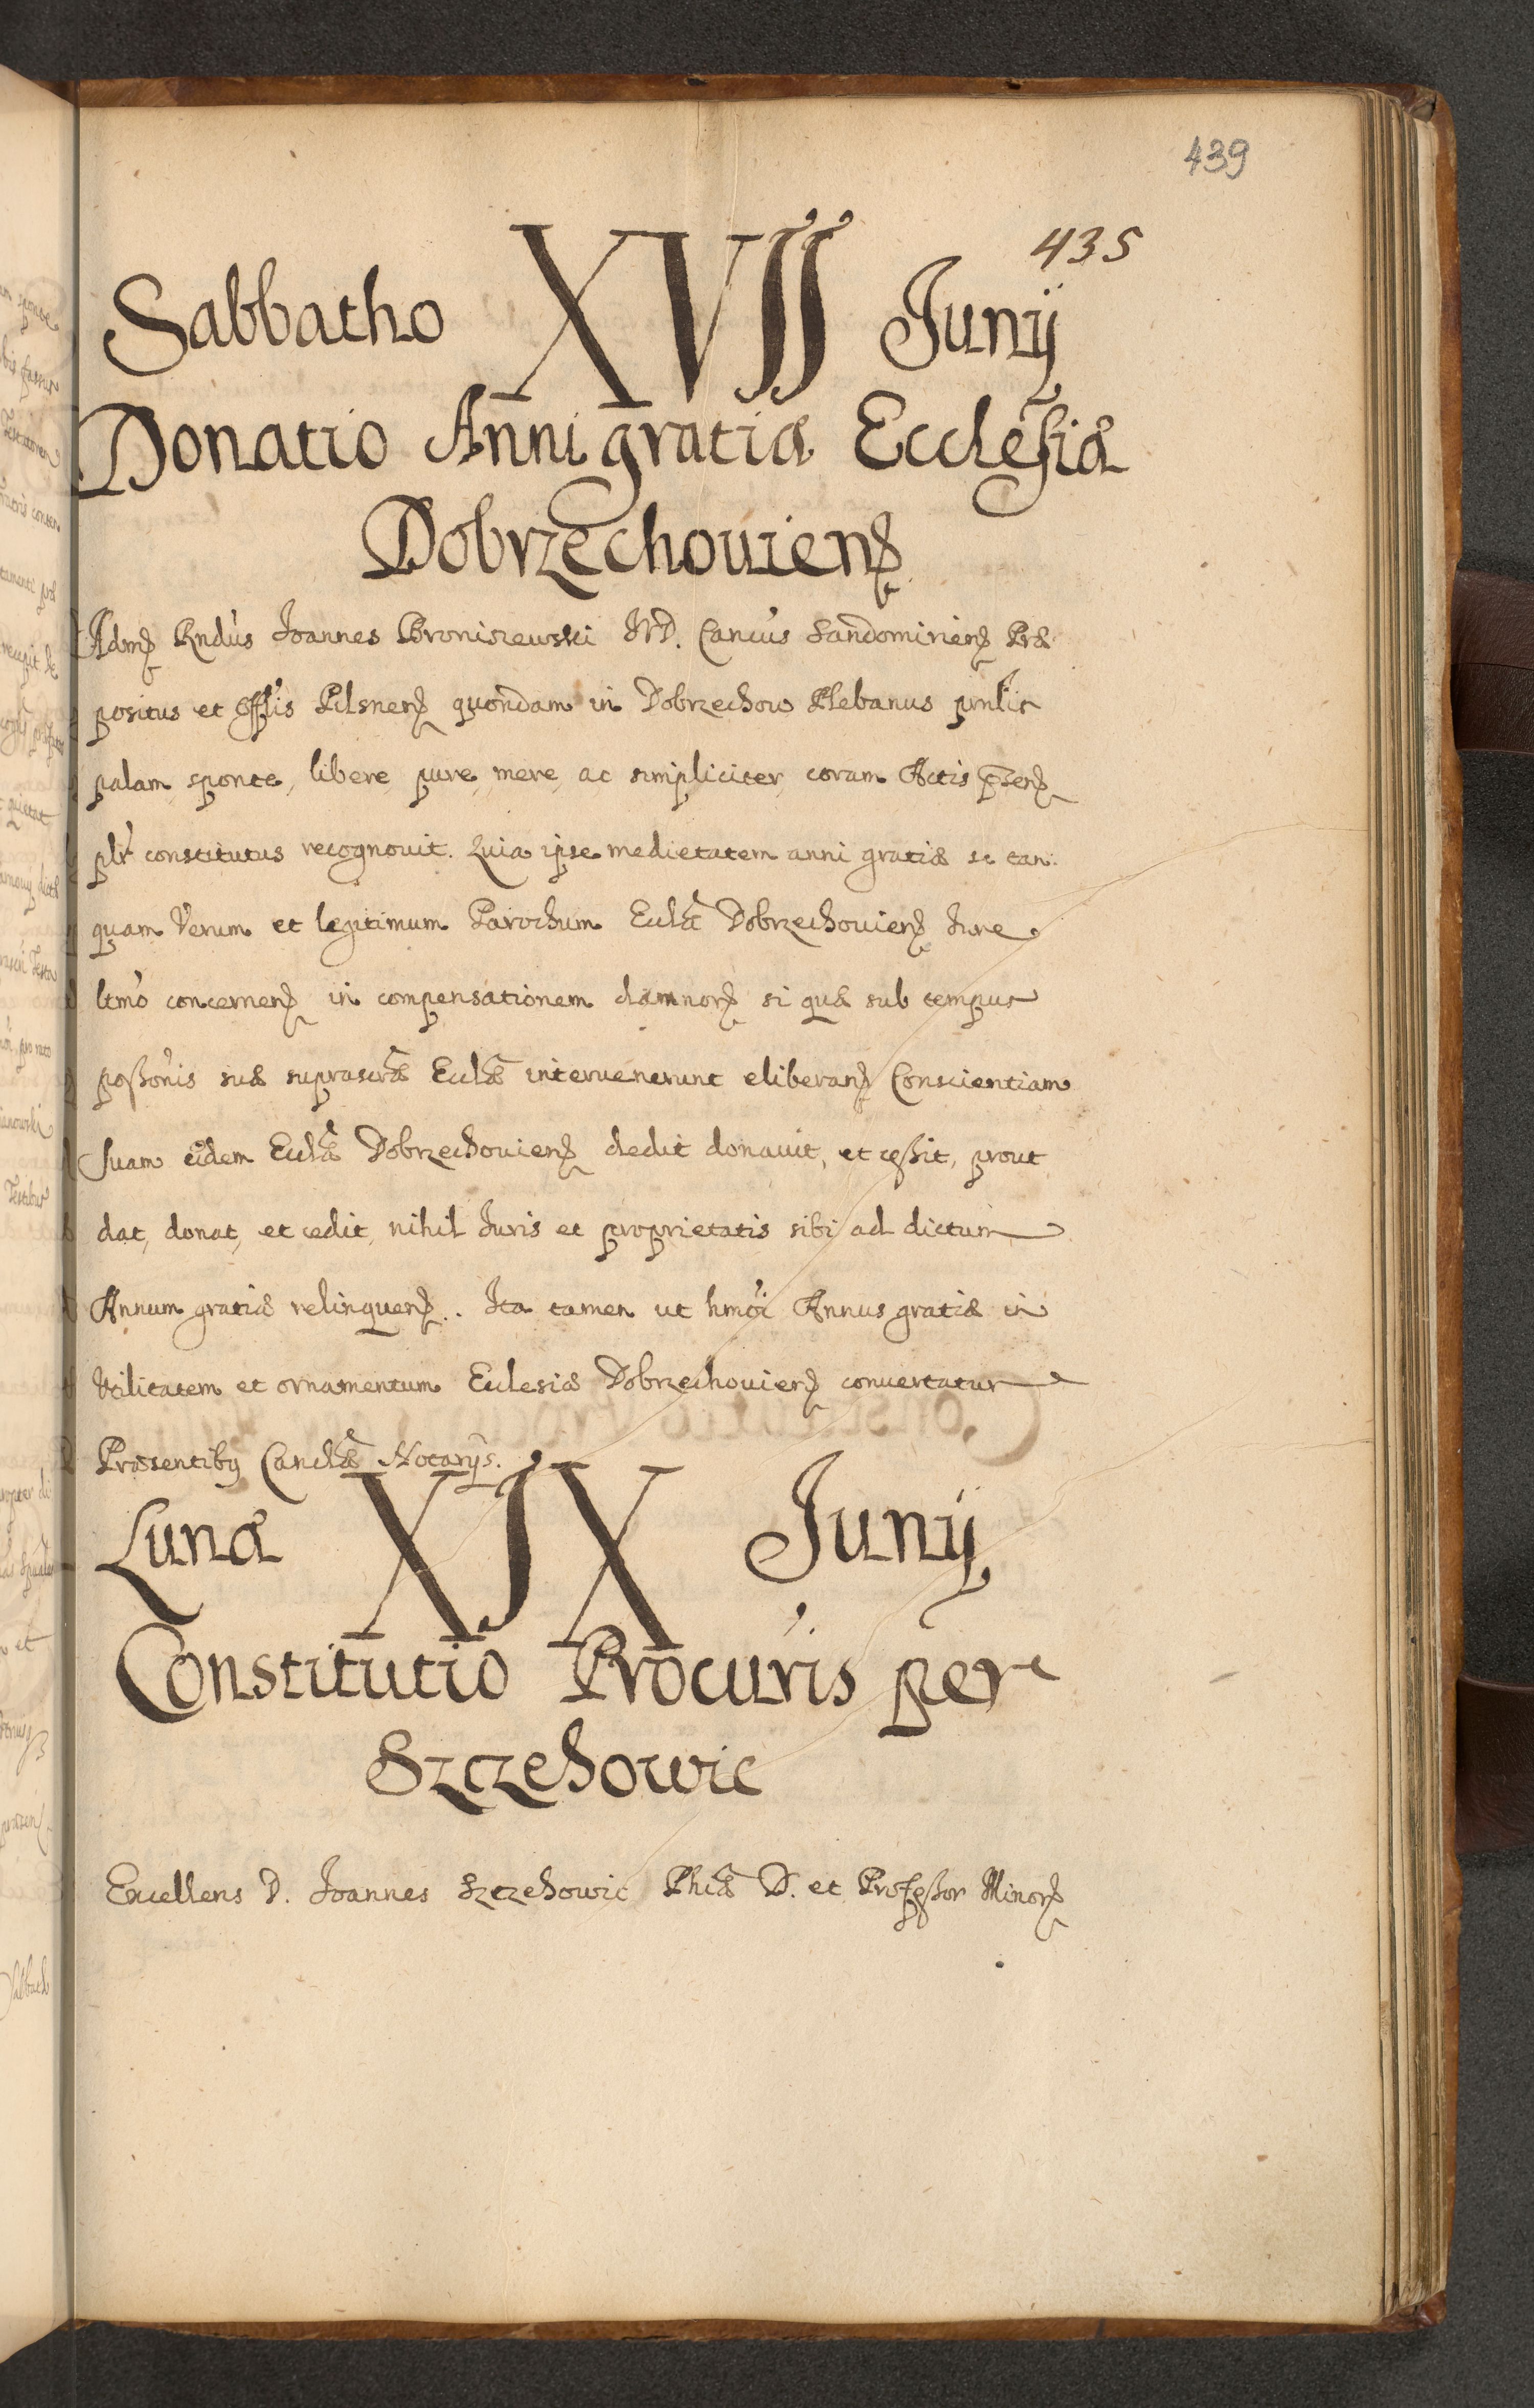 439
435
Sabbatho XVII Junij
Donatio Anni gratiæ Ecclesiæ
Dobrzechouiens
Adms Rndus Joannes Broniszewski JVD. Cancus Sandomiriens Præ
positus et Offlis Pilsnens quondam in Dobrzechow Plebanus pnlir
palam, sponte, libere, pure, mere, ac simpliciter, coram Actis præsens
plr constitutus recognouit. Quia ipse medietatem anni gratiæ se tan.
quam Verum et legitimum Parochum Ecclæ Dobrzechouiens Jure
ltmo concernens in compensationem damnors si quæ sub tempus
poßonis suæ suprascræ Ecclæ interuenerunt eliberans Conscientiam
suam eidem Ecclæ Dobrzechouiens dedit donauit, et ceßit, prout
dat, donat, et cedit, nihil Juris et proprietatis sibi ad dictum
Annum gratiæ relinquens.. Ita tamen ut hmoi Annus gratiæ in
Vtilitatem et ornamentum Ecclesiæ Dobrzechouiens conuertatur
Præsentibus Canclæ Notarijs.
Lunæ XIX Junij
Constitutio Procuris per
Szczehowic
Excellens D. Joannes Szczehowic Phiæ D. et Profeßor Minors